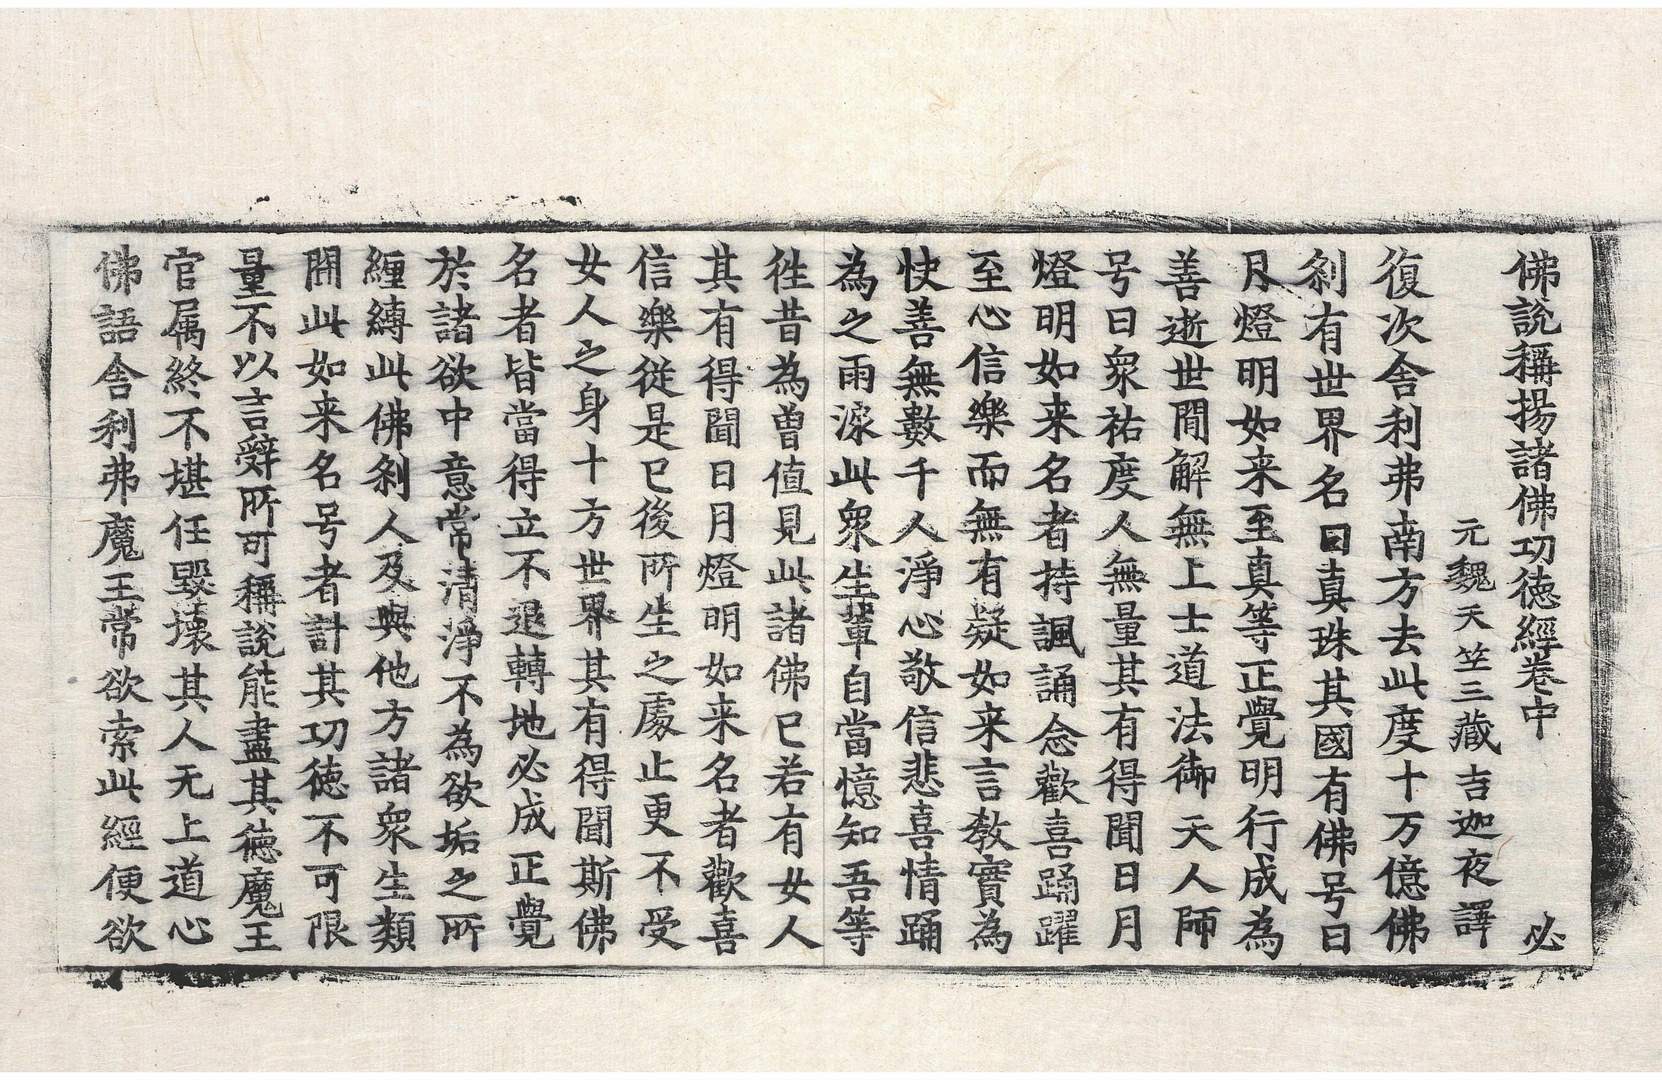 佛說稱揚諸佛功德經卷中 必
元魏天竺三藏吉迦夜譯
復次舍利弗南方去此度十万億佛
剎有世界名曰真珠其國有佛号曰
月燈明如来至真等正覺明行成為
善逝世間解無上士道法御天人師
号曰衆祐度人無量其有得聞日月
燈明如来名者持諷誦念歡喜踊躍
至心信樂而無有疑如来言教實為
快善無數千人淨心敬信悲喜情踊
為之雨淚此衆生輩自當憶知吾等
徃昔為曽值見此諸佛已若有女人
其有得聞日月燈明如来名者歡喜
信樂從是已後所生之處止更不受
女人之身十方世界其有得聞斯佛
名者皆當得立不退轉地必成正覺
於諸欲中意常清淨不為欲垢之所
纏縛此佛剎人及與他方諸衆生類
聞此如来名号者計其功德不可限
量不以言辭所可稱說能盡其德魔王
官属終不堪任毀壞其人无上道心
佛語舍利弗魔王常欲索此經便欲